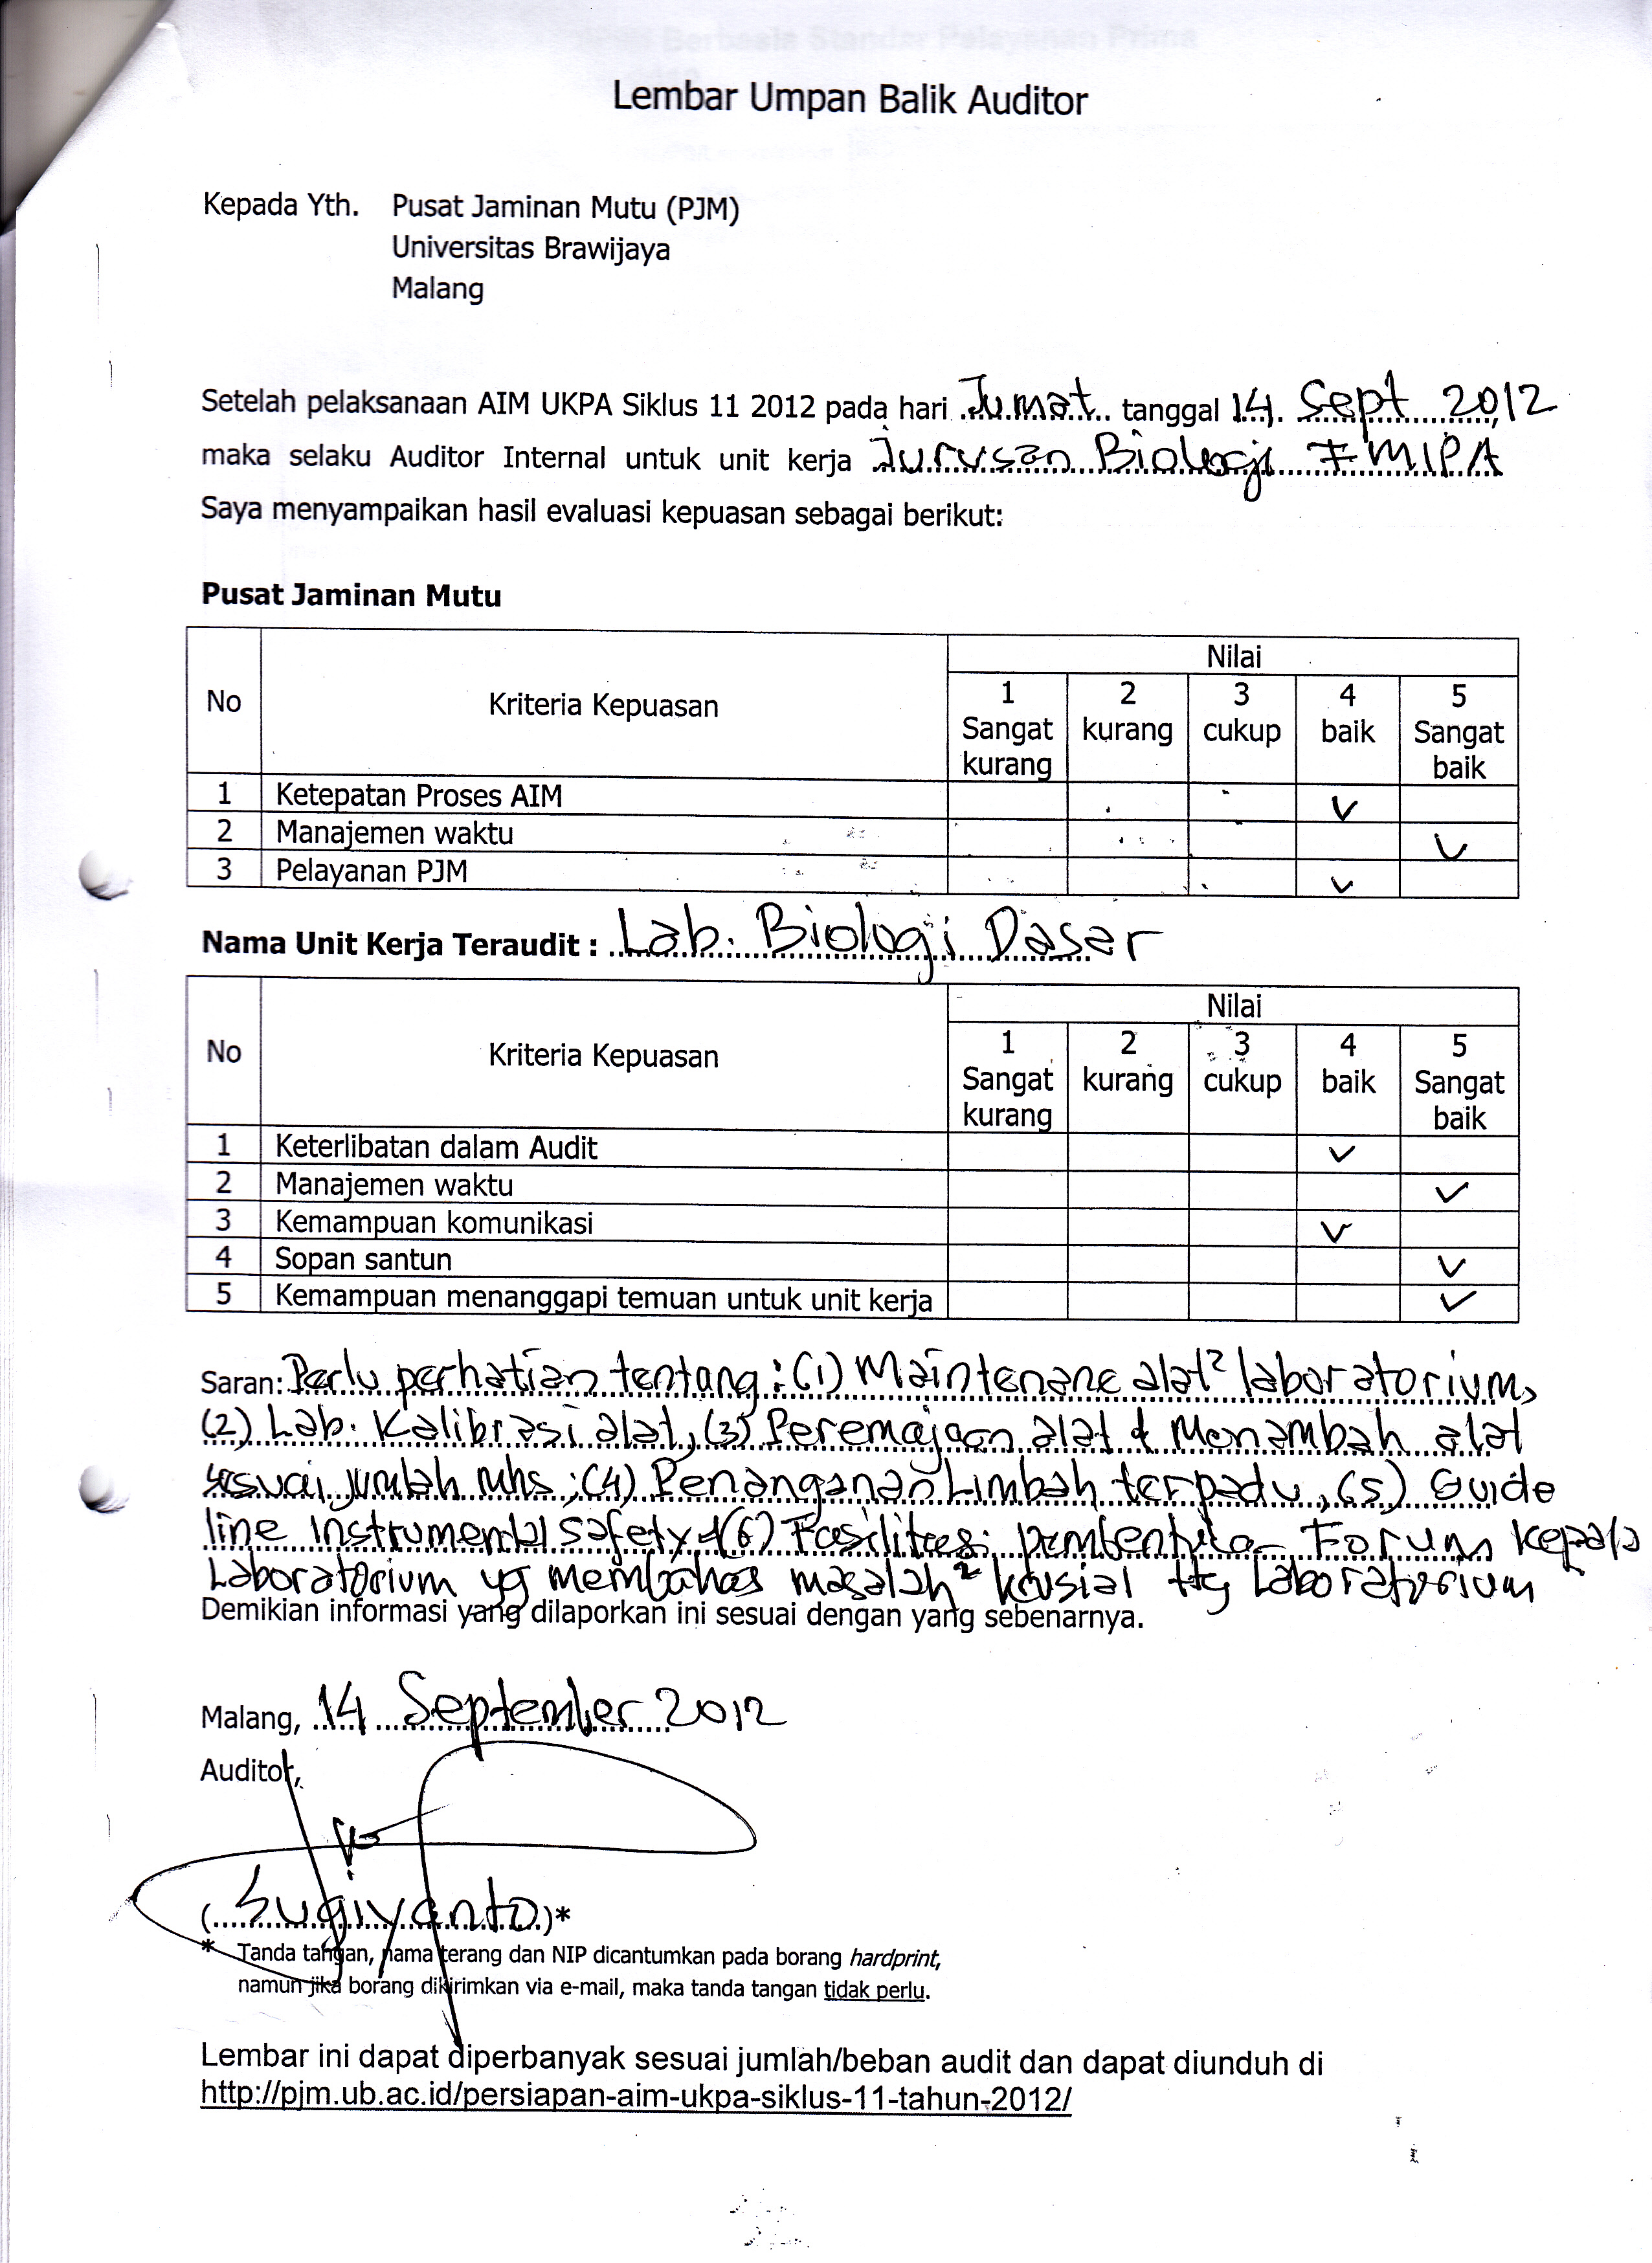 Lembar Umpan Balik Auditor
Kepada Yth. Pusat Jaminan Mutu (PJM)
Universitas Brawijaya
Malang
Setelah pelaksanaan AIM UKPA Siklus 11 2012 pada hari Jumat tanggal 14 Sept 2012,
maka selaku Auditor Internal untuk unit kerja Jurusan Biologi FMIPA
Saya menyampaikan hasil evaluasi kepuasan sebagai berikut:
Pusat Jaminan Mutu
No Kriteria Kepuasan Nilai
1 2 3 4 5
Sangat kurang cukup baik Sangat
kurang baik
1 Ketepatan Proses AIM ✓
2 Manajemen waktu ✓
3 Pelayanan PJM ✓
Nama Unit Kerja Teraudit : Lab. Biologi Dasar
No Kriteria Kepuasan Nilai
1 2 3 4 5
Sangat kurang cukup baik Sangat
kurang baik
1 Keterlibatan dalam Audit ✓
2 Manajemen waktu ✓
3 Kemampuan komunikasi ✓
4 Sopan santun ✓
5 Kemampuan menanggapi temuan untuk unit kerja ✓
Saran: Perlu perhatian tentang : (1) Maintenanc alat² laboratorium,
(2) Lab. Kalibrasi alat, (3) Peremajaan alat & Menambah alat
sesuai jumlah mhs ; (4) Penanganan Limbah terpadu, (5) Guide
line Instrumental safety & (6) Fasilitasi Forum Kepala
Laboratorium yg membahas masalah² krusial ttg Laboratorium
Demikian informasi yang dilaporkan ini sesuai dengan yang sebenarnya.
Malang, 14 September 2012
Auditor,
(Sugiyanto)*
* Tanda tangan, nama terang dan NIP dicantumkan pada borang hardprint,
namun jika borang dikirimkan via e-mail, maka tanda tangan tidak perlu.
Lembar ini dapat diperbanyak sesuai jumlah/beban audit dan dapat diunduh di
http://pjm.ub.ac.id/persiapan-aim-ukpa-siklus-11-tahun-2012/